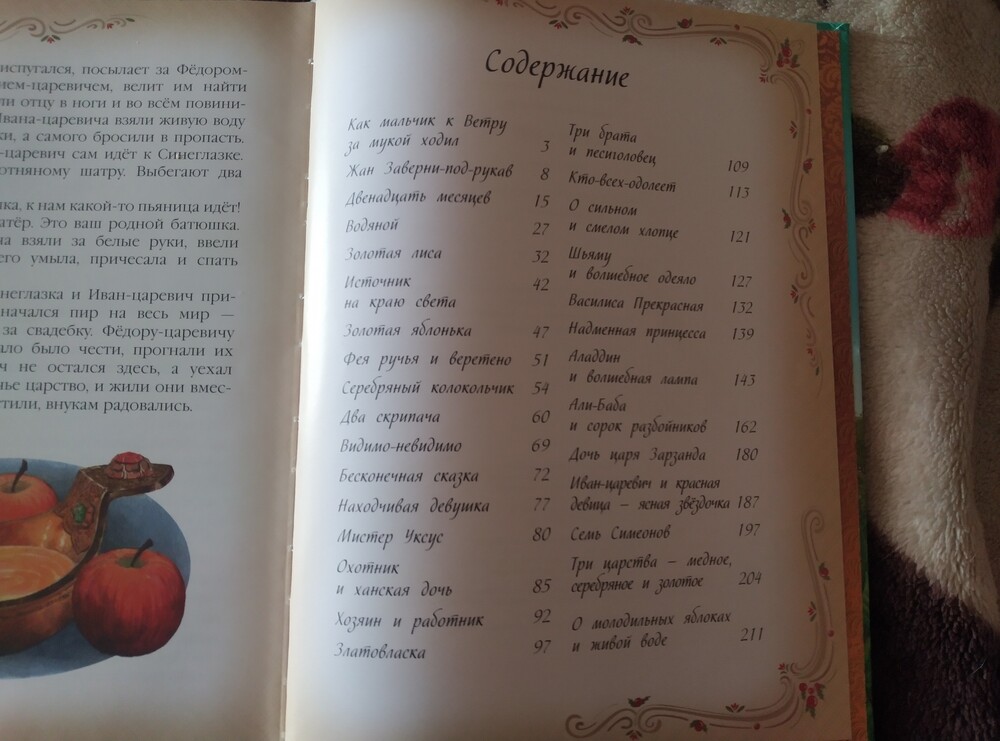 испугался, посылает за Фёдором-
ем-царевичем, велит им найти
ли отцу в ноги и во всём повини-
Ивана-царевича взяли живую воду
ки, а самого бросили в пропасть.
-царевич сам идёт к Синеглазке.
отняному шатру. Выбегают два
ка, к нам какой-то пьяница идёт!
атёр. Это ваш родной батюшка.
на взяли за белые руки, ввели
его умыла, причесала и спать
неглазка и Иван-царевич при-
начался пир на весь мир —
за свадебку. Фёдору-царевичу
ало было чести, прогнали их
ч не остался здесь, а уехал
чье царство, и жили они вмес-
стили, внукам радовались.
Содержание
Как мальчик к Ветру
за мукой ходил 3
Жан Заверни-под-рукав 8
Двенадцать месяцев 15
Водяной 27
Золотая лиса 32
Источник 42
на краю света
Золотая яблонька 47
Фея ручья и веретено 51
Серебряный колокольчик 54
Два скрипача 60
Видимо-невидимо 69
Бесконечная сказка 72
Находчивая девушка 77
Мистер Уксус 80
Охотник
и ханская дочь 85
Хозяин и работник 92
Златовласка 97
Три брата
и песиголовец 109
Кто-всех-одолеет 113
О сильном
и смелом хлопце 121
Шьяму
и волшебное одеяло 127
Василиса Прекрасная 132
Надменная принцесса 139
Аладдин
и волшебная лампа 143
Али-Баба
и сорок разбойников 162
Дочь царя Зарзанда 180
Иван-царевич и красная
девица – ясная звёздочка 187
Семь Симеонов 197
Три царства – медное,
серебряное и золотое 204
О молодильных яблоках
и живой воде 211